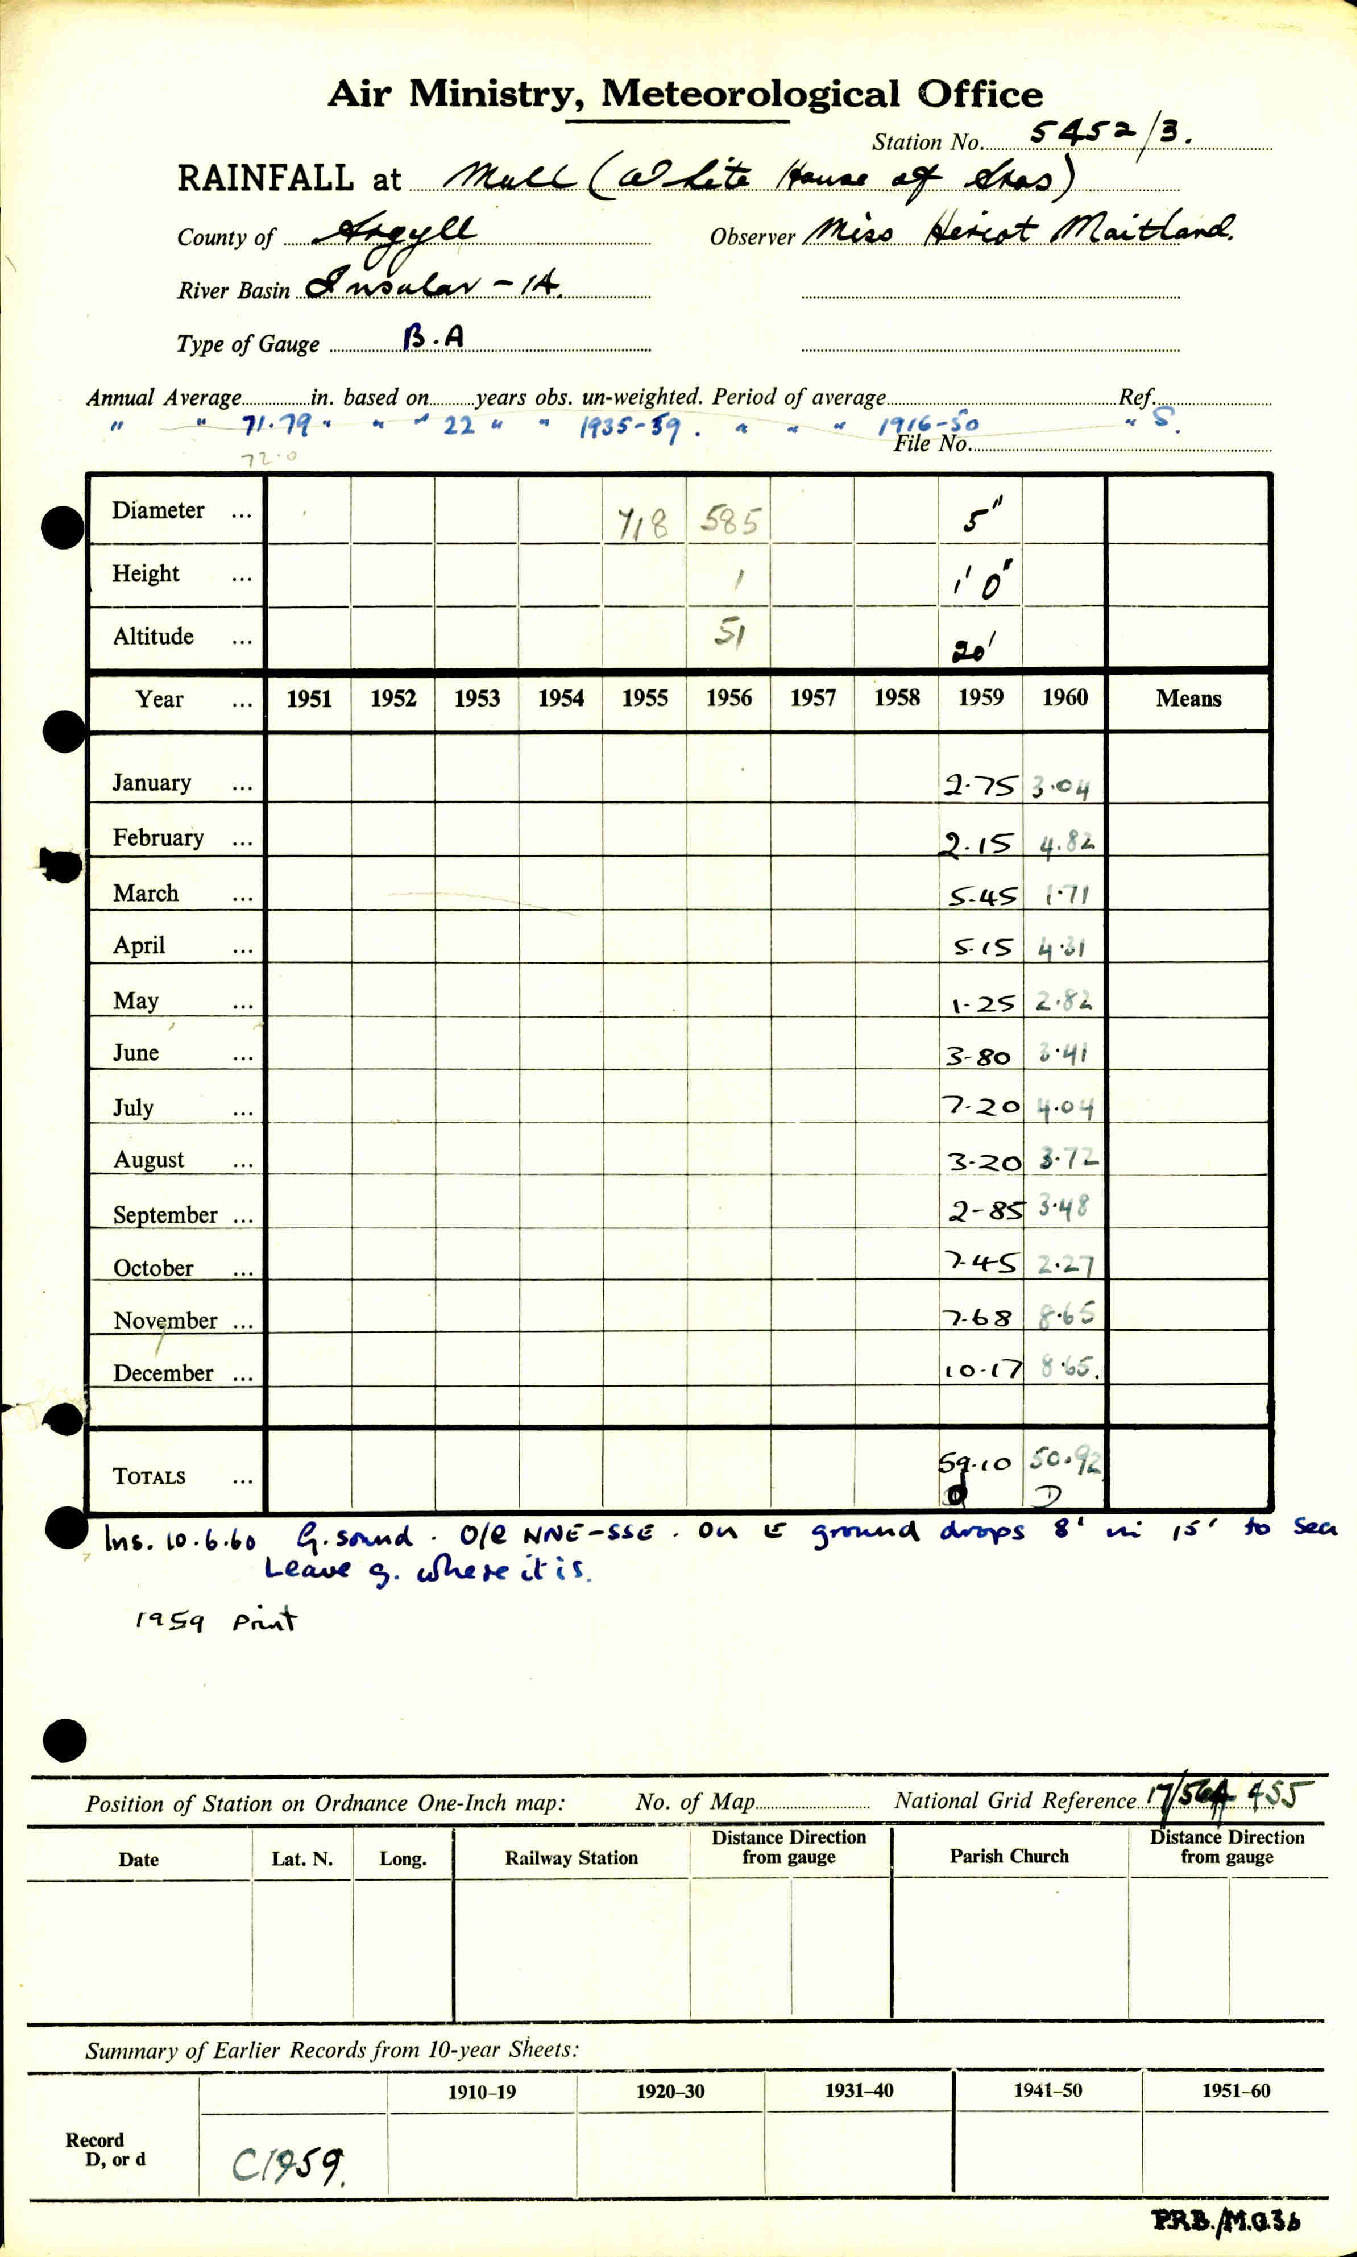 Air Ministry, Meteorological Office
Station No. 5452/3.
RAINFALL at Mull (White House of Aros)
County of Argyll Observer Miss Heriot Maitland.
River Basin Insular - 1A.
Type of Gauge B.A
Annual Average in. based on years obs. un-weighted. Period of average Ref.
" " 71.79 " " " 22 " " 1935-59. " " " 1916-50 " S.
File No.
72.0
Diameter ... 718 585 5"
Height ... 1 1' 0"
Altitude ... 51 20'
Year ... 1951 1952 1953 1954 1955 1956 1957 1958 1959 1960 Means
January ... 2.75 3.04
February ... 2.15 4.82
March ... 5.45 1.71
April ... 5.15 4.31
May ... 1.25 2.82
June ... 3-80 3.41
July ... 7-20 4.04
August ... 3-20 3.72
September ... 2-85 3.48
October ... 7.45 2.27
November ... 7.68 8.65
December ... 10.17 8.65.
TOTALS ... 59.10 50.92
D D
Ins. 10.6.60 G. sound. O/R NNE-SSE. On E ground drops 8' in 15' to sea
Leave g. where it is.
1959 Print
Position of Station on Ordnance One-Inch map: No. of Map National Grid Reference 17/564 455
Date Lat. N. Long. Railway Station Distance Direction from gauge Parish Church Distance Direction from gauge
Summary of Earlier Records from 10-year Sheets:
1910–19 1920–30 1931–40 1941–50 1951–60
Record
D, or d
C1959.
P.R.B./M.O.3b